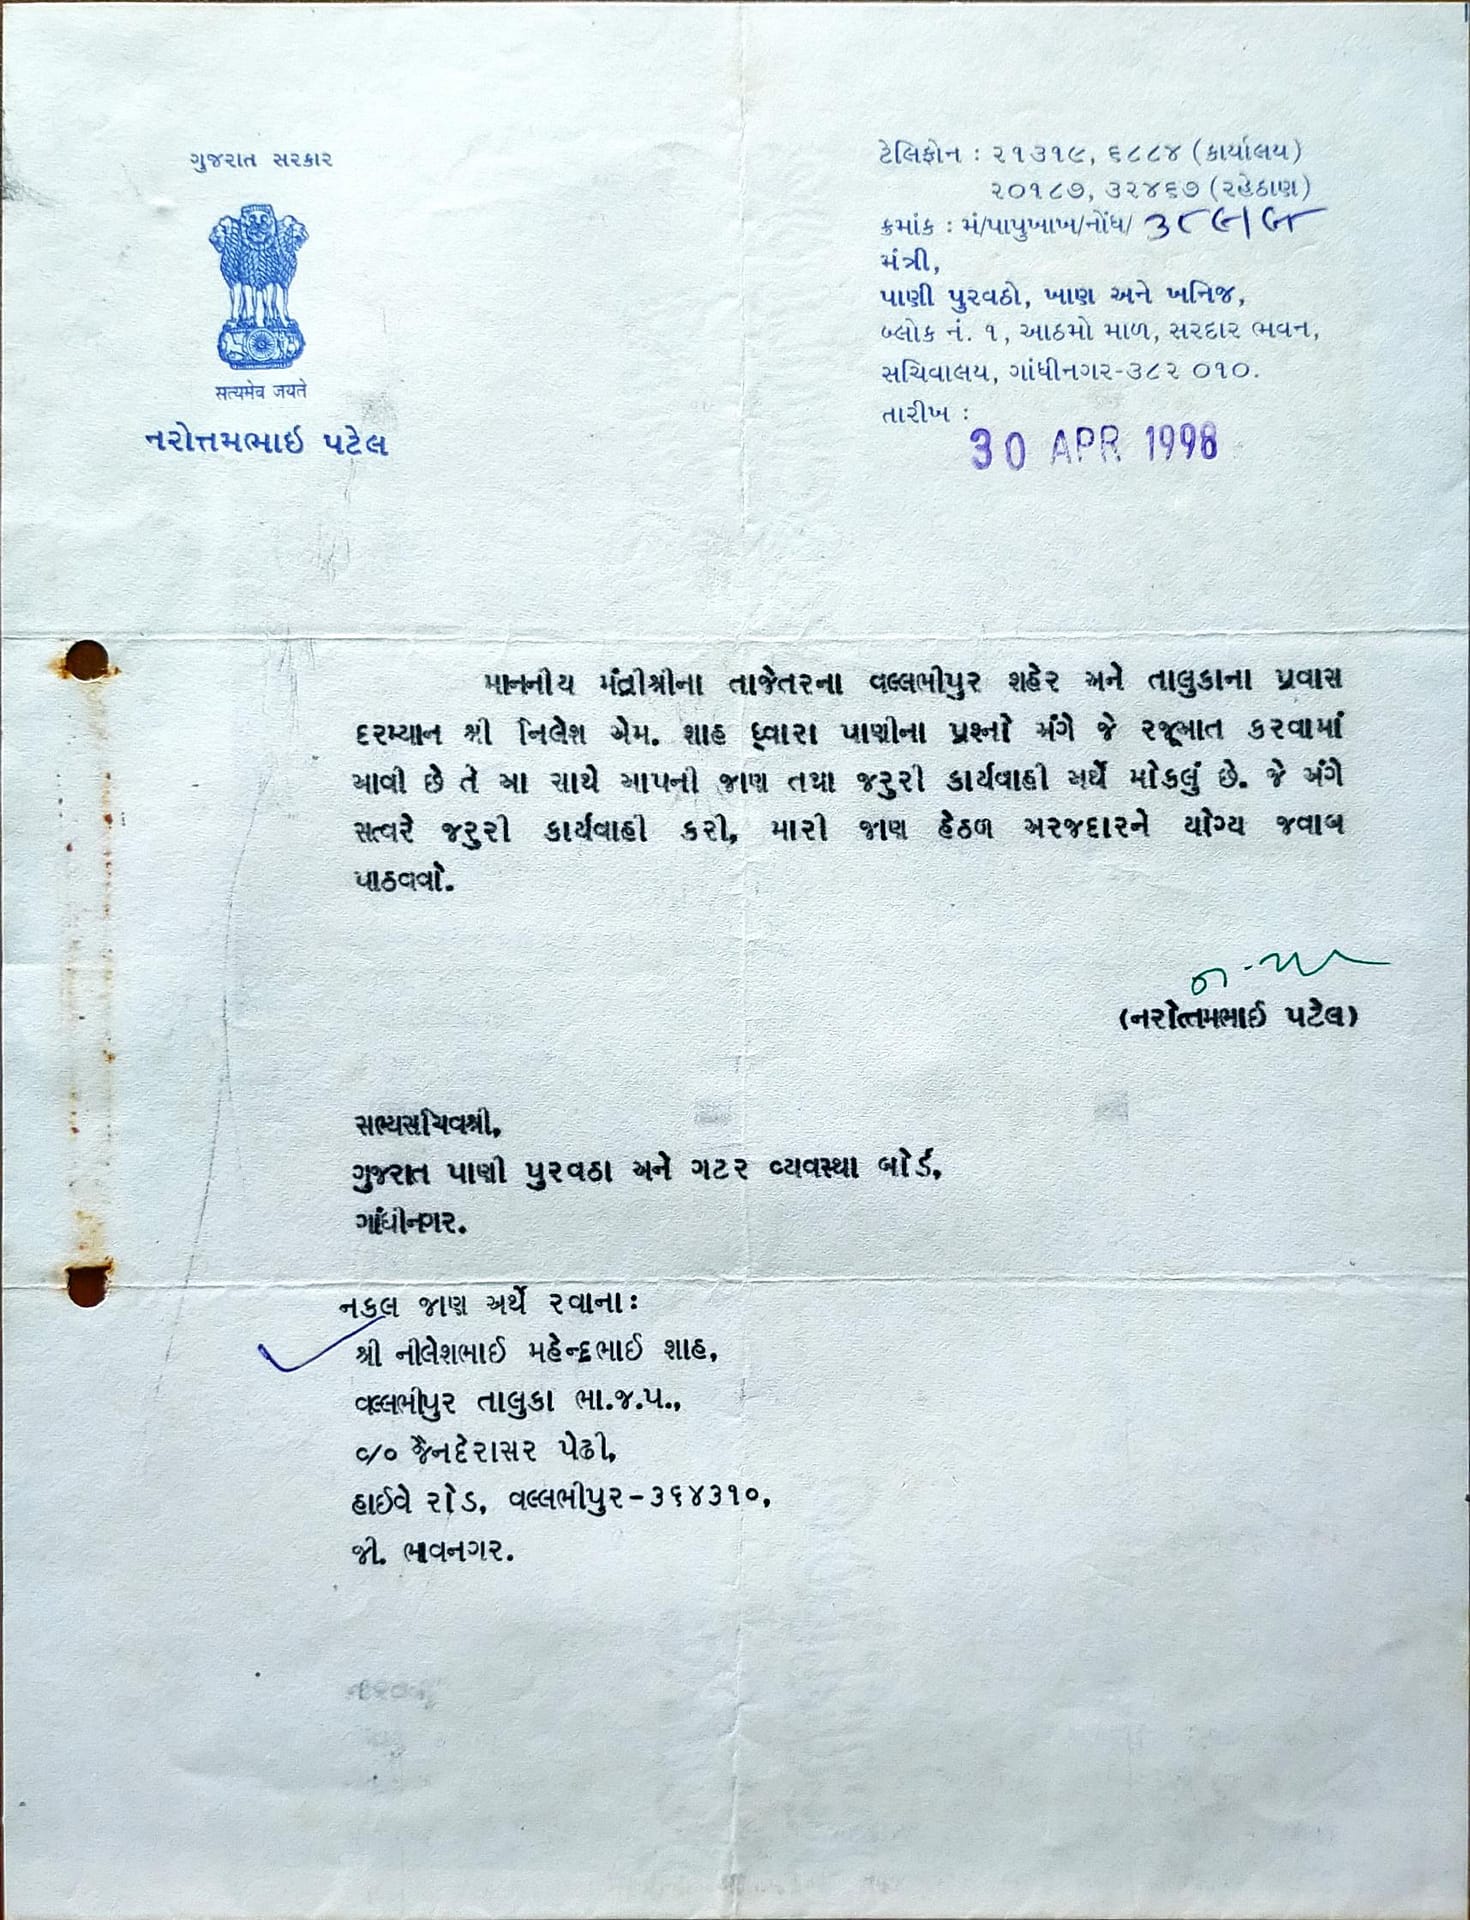 ગુજરાત સરકાર
सत्यमेव जयते
નરોત્તમભાઈ પટેલ
ટેલિફોન : ૨૧૩૧૯, ૬૮૮૪ (કાર્યાલય)
૨૦૧૮૭, ૩૨૪૬૭ (રહેઠાણ)
ક્રમાંક : મં/પાપુખાખ/નોંધ/
મંત્રી,
પાણી પુરવઠો, ખાણ અને ખનિજ,
બ્લોક નં. ૧, આઠમો માળ, સરદાર ભવન,
સચિવાલય, ગાંધીનગર-૩૮૨ ૦૧૦.
તારીખ :
30 APR 1998
માનનીય મંત્રીશ્રીના તાજેતરના વલ્લભીપુર શહેર અને તાલુકાના પ્રવાસ
દરમ્યાન શ્રી નિલેશ એમ. શાહ ધ્વારા પાણીના પ્રશ્નો અંગે જે રજૂઆત કરવામાં
આવી છે તે આ સાથે આપની જાણ તથા જરુરી કાર્યવાહી અર્થે મોકલું છે. જે અંગે
સત્વરે જરુરી કાર્યવાહી કરી, મારી જાણ હેઠળ અરજદારને યોગ્ય જવાબ
પાઠવવો.
(નરોત્તમભાઈ પટેલ)
સભ્યસચિવશ્રી,
ગુજરાત પાણી પુરવઠા અને ગટર વ્યવસ્થા બોર્ડ,
ગાંધીનગર.
નકલ જાણ અર્થે રવાના:
શ્રી નીલેશભાઈ મહેન્દ્રભાઈ શાહ,
વલ્લભીપુર તાલુકા ભા.જ.પ.,
c/o જૈનદેરાસર પેઢી,
હાઈવે રોડ, વલ્લભીપુર-૩૬૪૩૧૦,
જી. ભાવનગર.